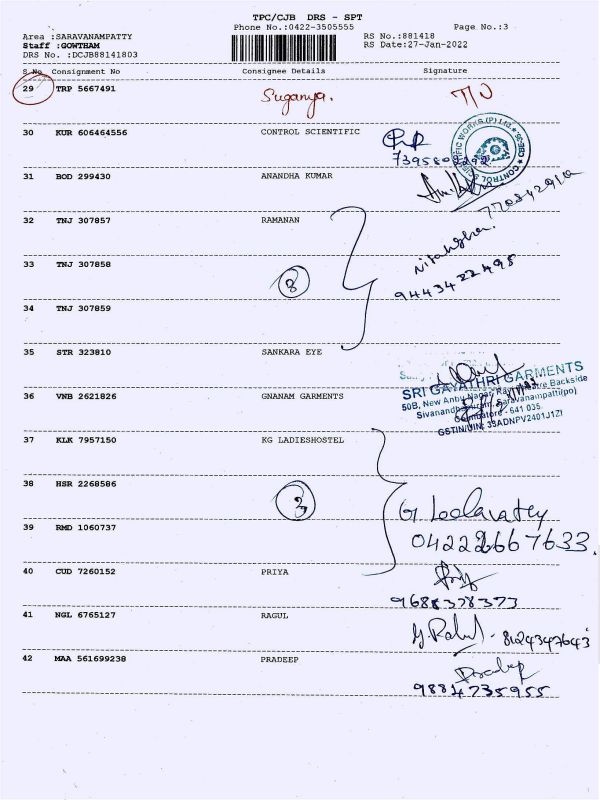 TPC/CJB DRS - SPT
Phone No.:0422-3505555
Page No.:3
Area :SARAVANAMPATTY
RS No.:881418
Staff :GOWTHAM
RS Date:27-Jan-2022
DRS No. :DCJB88141803
S.No Consignment No Consignee Details Signature
29 TRP 5667491 Suganya.
30 KUR 606464556 CONTROL SCIENTIFIC
31 BOD 299430 ANANDHA KUMAR
32 TNJ 307857 RAMANAN
33 TNJ 307858 8
9443422498
34 TNJ 307859
35 STR 323810 SANKARA EYE
SRI GAYATHRI GARMENTS
36 VNB 2621826 GNANAM GARMENTS
50B, New Anbu Nagar, Backside
Saravanampatti(po)
Coimbatore - 641 035.
GSTIN/UIN: 33ADNPV2401J1ZI
37 KLK 7957150 KG LADIESHOSTEL
38 HSR 2268586 3
G Leelavathy
39 RMD 1060737
04222667633.
40 CUD 7260152 PRIYA
9688378373
41 NGL 6765127 RAGUL
G.Rahul - 8124347643
42 MAA 561699238 PRADEEP
Pradeep
9884735955